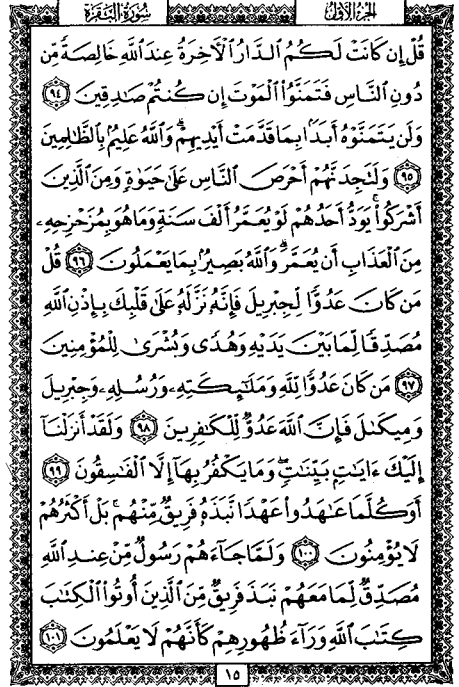 سُورَةُ البَقَرَةِ
الجُزْءُ الأَوَّلُ
قُلْ إِن كَانَتْ لَكُمُ ٱلدَّارُ ٱلْأَخِرَةُ عِندَ ٱللَّهِ خَالِصَةً مِّن
دُونِ ٱلنَّاسِ فَتَمَنَّوُا۟ ٱلْمَوْتَ إِن كُنتُمْ صَـٰدِقِينَ ٩٤
وَلَن يَتَمَنَّوْهُ أَبَدًۢا بِمَا قَدَّمَتْ أَيْدِيهِمْ ۗ وَٱللَّهُ عَلِيمٌۢ بِٱلظَّـٰلِمِينَ
٩٥ وَلَتَجِدَنَّهُمْ أَحْرَصَ ٱلنَّاسِ عَلَىٰ حَيَوٰةٍ وَمِنَ ٱلَّذِينَ
أَشْرَكُوا۟ ۚ يَوَدُّ أَحَدُهُمْ لَوْ يُعَمَّرُ أَلْفَ سَنَةٍ وَمَا هُوَ بِمُزَحْزِحِهِۦ
مِنَ ٱلْعَذَابِ أَن يُعَمَّرَ ۗ وَٱللَّهُ بَصِيرٌۢ بِمَا يَعْمَلُونَ ٩٦ قُلْ
مَن كَانَ عَدُوًّا لِّجِبْرِيلَ فَإِنَّهُۥ نَزَّلَهُۥ عَلَىٰ قَلْبِكَ بِإِذْنِ ٱللَّهِ
مُصَدِّقًا لِّمَا بَيْنَ يَدَيْهِ وَهُدًى وَبُشْرَىٰ لِلْمُؤْمِنِينَ
٩٧ مَن كَانَ عَدُوًّا لِّلَّهِ وَمَلَـٰٓئِكَتِهِۦ وَرُسُلِهِۦ وَجِبْرِيلَ
وَمِيكَىٰلَ فَإِنَّ ٱللَّهَ عَدُوٌّ لِّلْكَـٰفِرِينَ ٩٨ وَلَقَدْ أَنزَلْنَآ
إِلَيْكَ ءَايَـٰتٍۭ بَيِّنَـٰتٍ ۖ وَمَا يَكْفُرُ بِهَآ إِلَّا ٱلْفَـٰسِقُونَ ٩٩
أَوَكُلَّمَا عَـٰهَدُوا۟ عَهْدًا نَّبَذَهُۥ فَرِيقٌ مِّنْهُم ۚ بَلْ أَكْثَرُهُمْ
لَا يُؤْمِنُونَ ١٠٠ وَلَمَّا جَآءَهُمْ رَسُولٌ مِّنْ عِندِ ٱللَّهِ
مُصَدِّقٌ لِّمَا مَعَهُمْ نَبَذَ فَرِيقٌ مِّنَ ٱلَّذِينَ أُوتُوا۟ ٱلْكِتَـٰبَ
كِتَـٰبَ ٱللَّهِ وَرَآءَ ظُهُورِهِمْ كَأَنَّهُمْ لَا يَعْلَمُونَ ١٠١
١٥